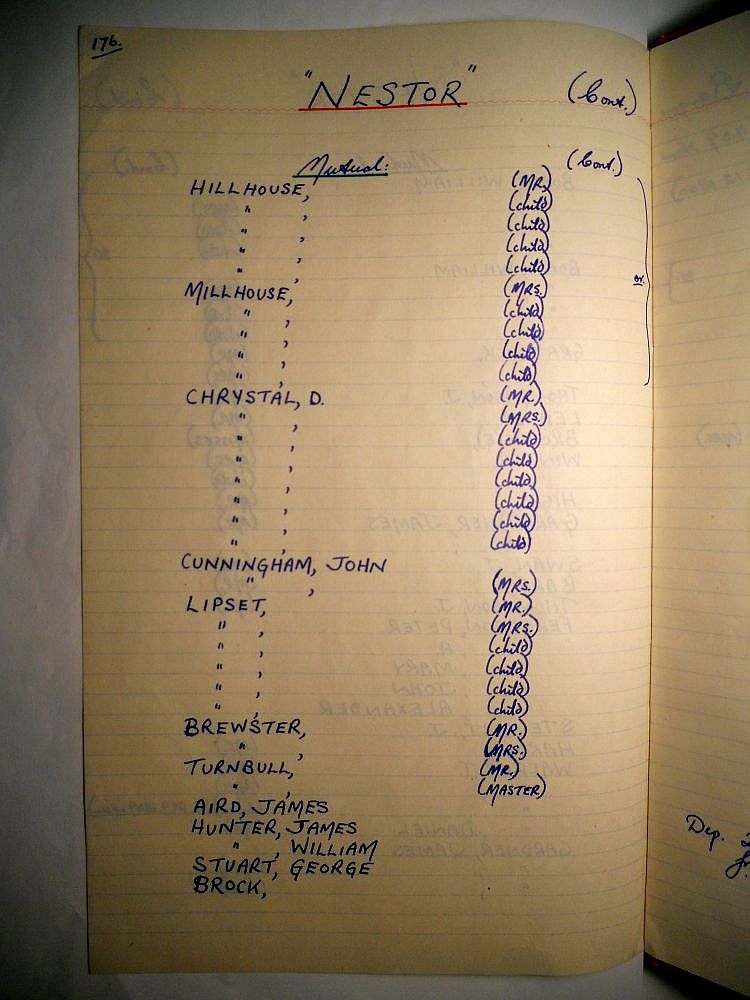 176.
"NESTOR" (Cont.)
Mutual: (Cont.)
HILLHOUSE, (MR.)
" , (child)
" , (child)
" , (child)
" , (child)
MILLHOUSE, (MRS.)
" , (child)
" , (child)
" , (child)
" , (child)
or
CHRYSTAL, D. (MR.)
" , (MRS.)
" , (child)
" , (child)
" , (child)
" , (child)
" , (child)
" , (child)
CUNNINGHAM, JOHN
" , (MRS.)
LIPSET, (MR.)
" , (MRS.)
" , (child)
" , (child)
" , (child)
" , (child)
BREWSTER, (MR.)
" , (MRS.)
TURNBULL, (MR.)
" , (MASTER)
AIRD, JAMES
HUNTER, JAMES
" , WILLIAM
STUART, GEORGE
BROCK,
Dep.